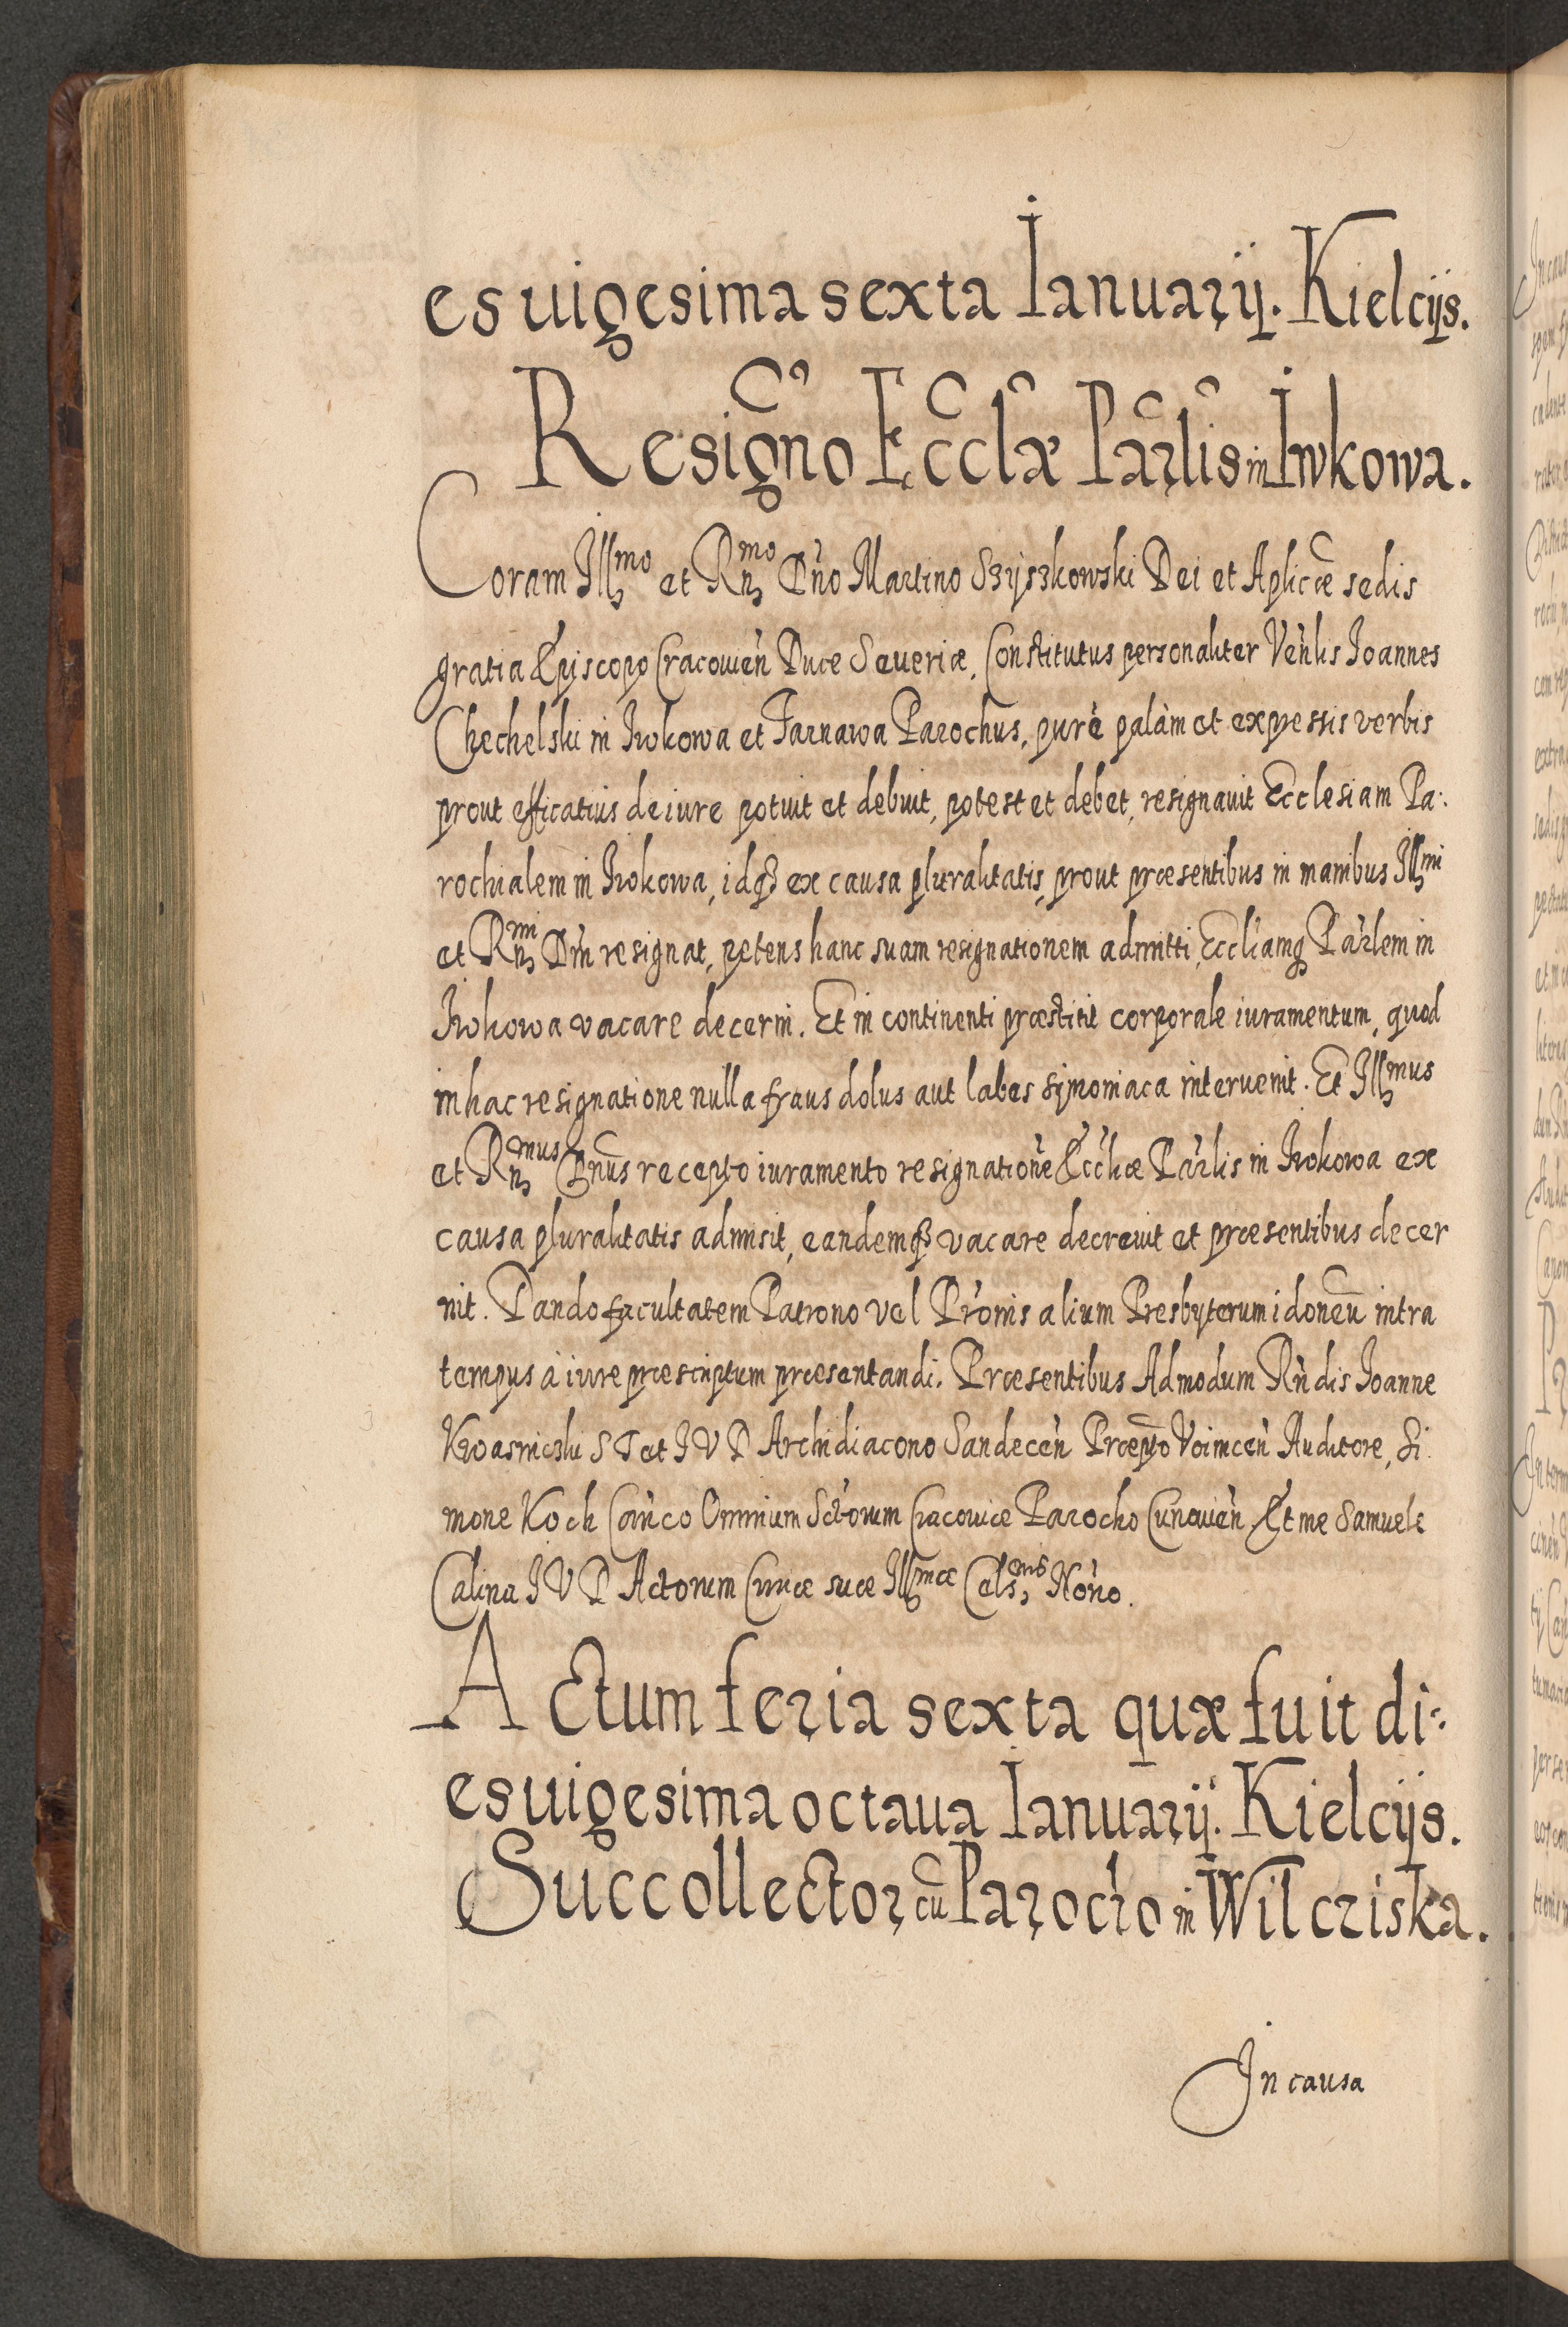 es uigesima sexta Ianuarij. Kielcijs.
Resigno Ecclæ Parlis in Iwkowa.
Coram Illmo et Rnmo Dno Martino Szyszkowski Dei et Aplicæ sedis
gratia Episcopo Cracouien Duce Seueriæ, Constitutus personaliter Venlis Ioannes
Chechelski in Iwkowa et Tarnawa Parochus, purè palàm et expressis verbis
prout efficatius de iure potuit et debuit, potest et debet, resignauit Ecclesiam Pa:
rochialem in Iwkowa, idq3 ex causa pluralitatis, prout præsentibus in manibus Illmi
et Rnmi Dni resignat, petens hanc suam resignationem admitti, Eccliamq Parlem in
Iwkowa vacare decerni. Et in continenti præstitit corporale iuramentum, quod
in hac resignatione nulla fraus dolus aut labes symoniaca interuenit. Et Illmus
et Rnmus Dnus recepto iuramento resignatione Eccliæ Parlis in Iwkowa ex
causa pluralitatis admisit, eandemq3 vacare decreuit et præsentibus decer
nit. Dando facultatem Patrono vel Pronis alium Presbyterum idoneu intra
tempus à iure præscriptum præsentandi. Præsentibus Admodum Rndis Ioanne
Kwasniczki S T et I V D Archidiacono Sandecen Præpto Voimcen Auditore, Si
mone Koch Canco Omnium Sctorum Cracouiæ Parocho Cunouien, Et me Samuele
Calina I V D Actorum Curiæ suæ Illmæ Cels,nis Norio.
Actum feria sexta quæ fuit di:
es uigesima octaua Ianuarij. Kielcijs.
Succollector cu Parocho in Wilcziska.
In causa